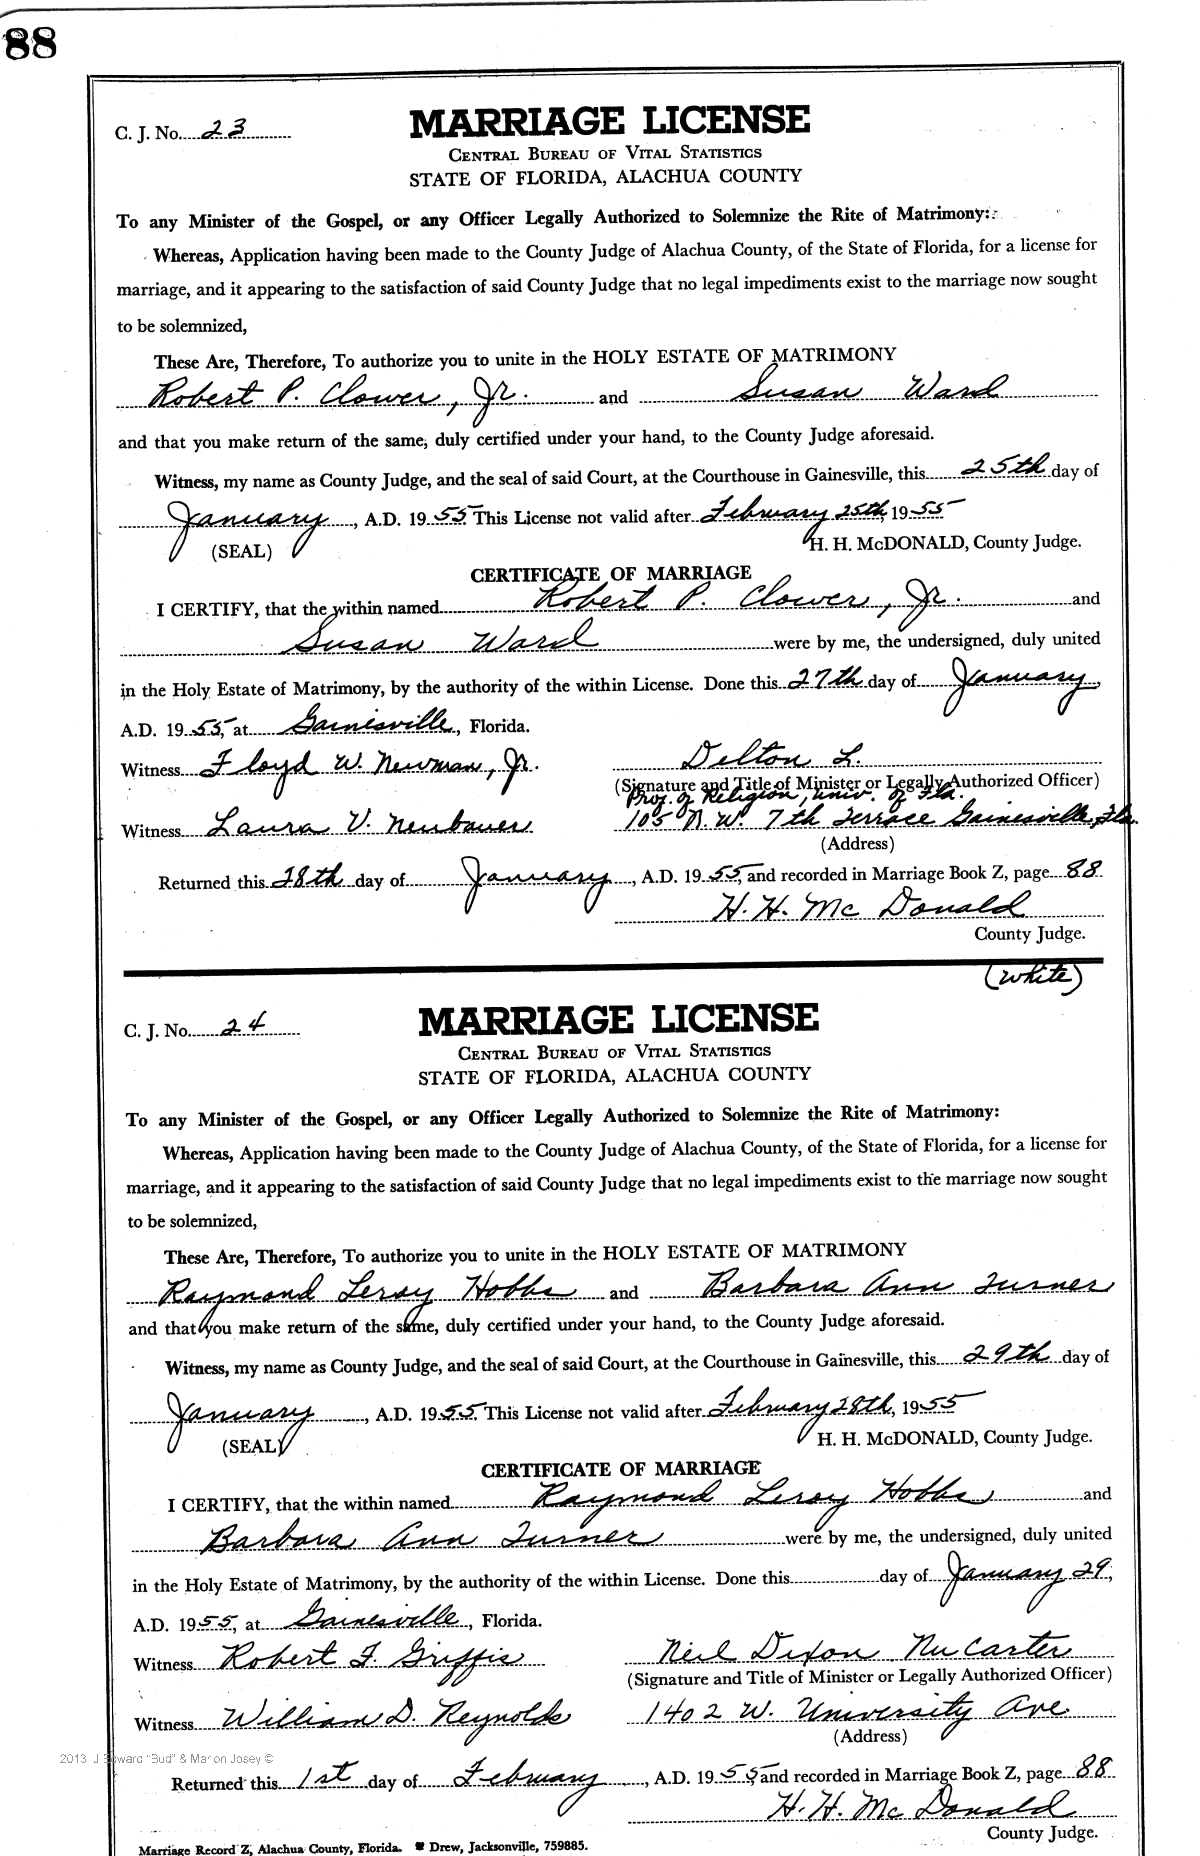 88
C. J. No. 23
MARRIAGE LICENSE
CENTRAL BUREAU OF VITAL STATISTICS
STATE OF FLORIDA, ALACHUA COUNTY
To any Minister of the Gospel, or any Officer Legally Authorized to Solemnize the Rite of Matrimony:
Whereas, Application having been made to the County Judge of Alachua County, of the State of Florida, for a license for
marriage, and it appearing to the satisfaction of said County Judge that no legal impediments exist to the marriage now sought
to be solemnized,
These Are, Therefore, To authorize you to unite in the HOLY ESTATE OF MATRIMONY
Robert P. Clower, Jr. and Susan Ward
and that you make return of the same, duly certified under your hand, to the County Judge aforesaid.
Witness, my name as County Judge, and the seal of said Court, at the Courthouse in Gainesville, this 25th day of
January, A.D. 1955 This License not valid after February 25th, 1955
(SEAL) H. H. McDONALD, County Judge.
CERTIFICATE OF MARRIAGE
I CERTIFY, that the within named Robert P. Clower, Jr. and
Susan Ward were by me, the undersigned, duly united
in the Holy Estate of Matrimony, by the authority of the within License. Done this 27th day of January,
A.D. 1955, at Gainesville, Florida.
Witness Floyd W. Newman, Jr. Delton L.
(Signature and Title of Minister or Legally Authorized Officer)
Prof. of Religion, Univ. of Fla.
Witness Laura V. Neubauer 105 N.W. 7th Terrace Gainesville, Fla.
(Address)
Returned this 28th day of January, A.D. 1955, and recorded in Marriage Book Z, page 88
H. H. Mc Donald
County Judge.
(White)
C. J. No. 24
MARRIAGE LICENSE
CENTRAL BUREAU OF VITAL STATISTICS
STATE OF FLORIDA, ALACHUA COUNTY
To any Minister of the Gospel, or any Officer Legally Authorized to Solemnize the Rite of Matrimony:
Whereas, Application having been made to the County Judge of Alachua County, of the State of Florida, for a license for
marriage, and it appearing to the satisfaction of said County Judge that no legal impediments exist to the marriage now sought
to be solemnized,
These Are, Therefore, To authorize you to unite in the HOLY ESTATE OF MATRIMONY
Raymond Leroy Hobbs and Barbara Ann Turner
and that you make return of the same, duly certified under your hand, to the County Judge aforesaid.
Witness, my name as County Judge, and the seal of said Court, at the Courthouse in Gainesville, this 29th day of
January, A.D. 1955. This License not valid after February 28th, 1955
(SEAL) H. H. McDONALD, County Judge.
CERTIFICATE OF MARRIAGE
I CERTIFY, that the within named Raymond Leroy Hobbs and
Barbara Ann Turner were by me, the undersigned, duly united
in the Holy Estate of Matrimony, by the authority of the within License. Done this day of January 29,
A.D. 1955, at Gainesville, Florida.
Witness Robert F. Griffis Neil Dixon NuCarter
(Signature and Title of Minister or Legally Authorized Officer)
Witness William D. Reynolds 1402 W. University Ave
(Address)
2013 J Edward "Bud" & Marion Josey ©
Returned this 1st day of February, A.D. 1955, and recorded in Marriage Book Z, page 88
H. H. Mc Donald
County Judge.
Marriage Record Z, Alachua County, Florida. Drew, Jacksonville, 759885.